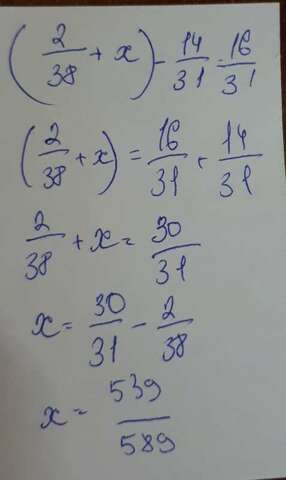 (2/38 + x) - 14/31 = 16/31
(2/38 + x) = 16/31 + 14/31
2/38 + x = 30/31
x = 30/31 - 2/38
x = 539/589